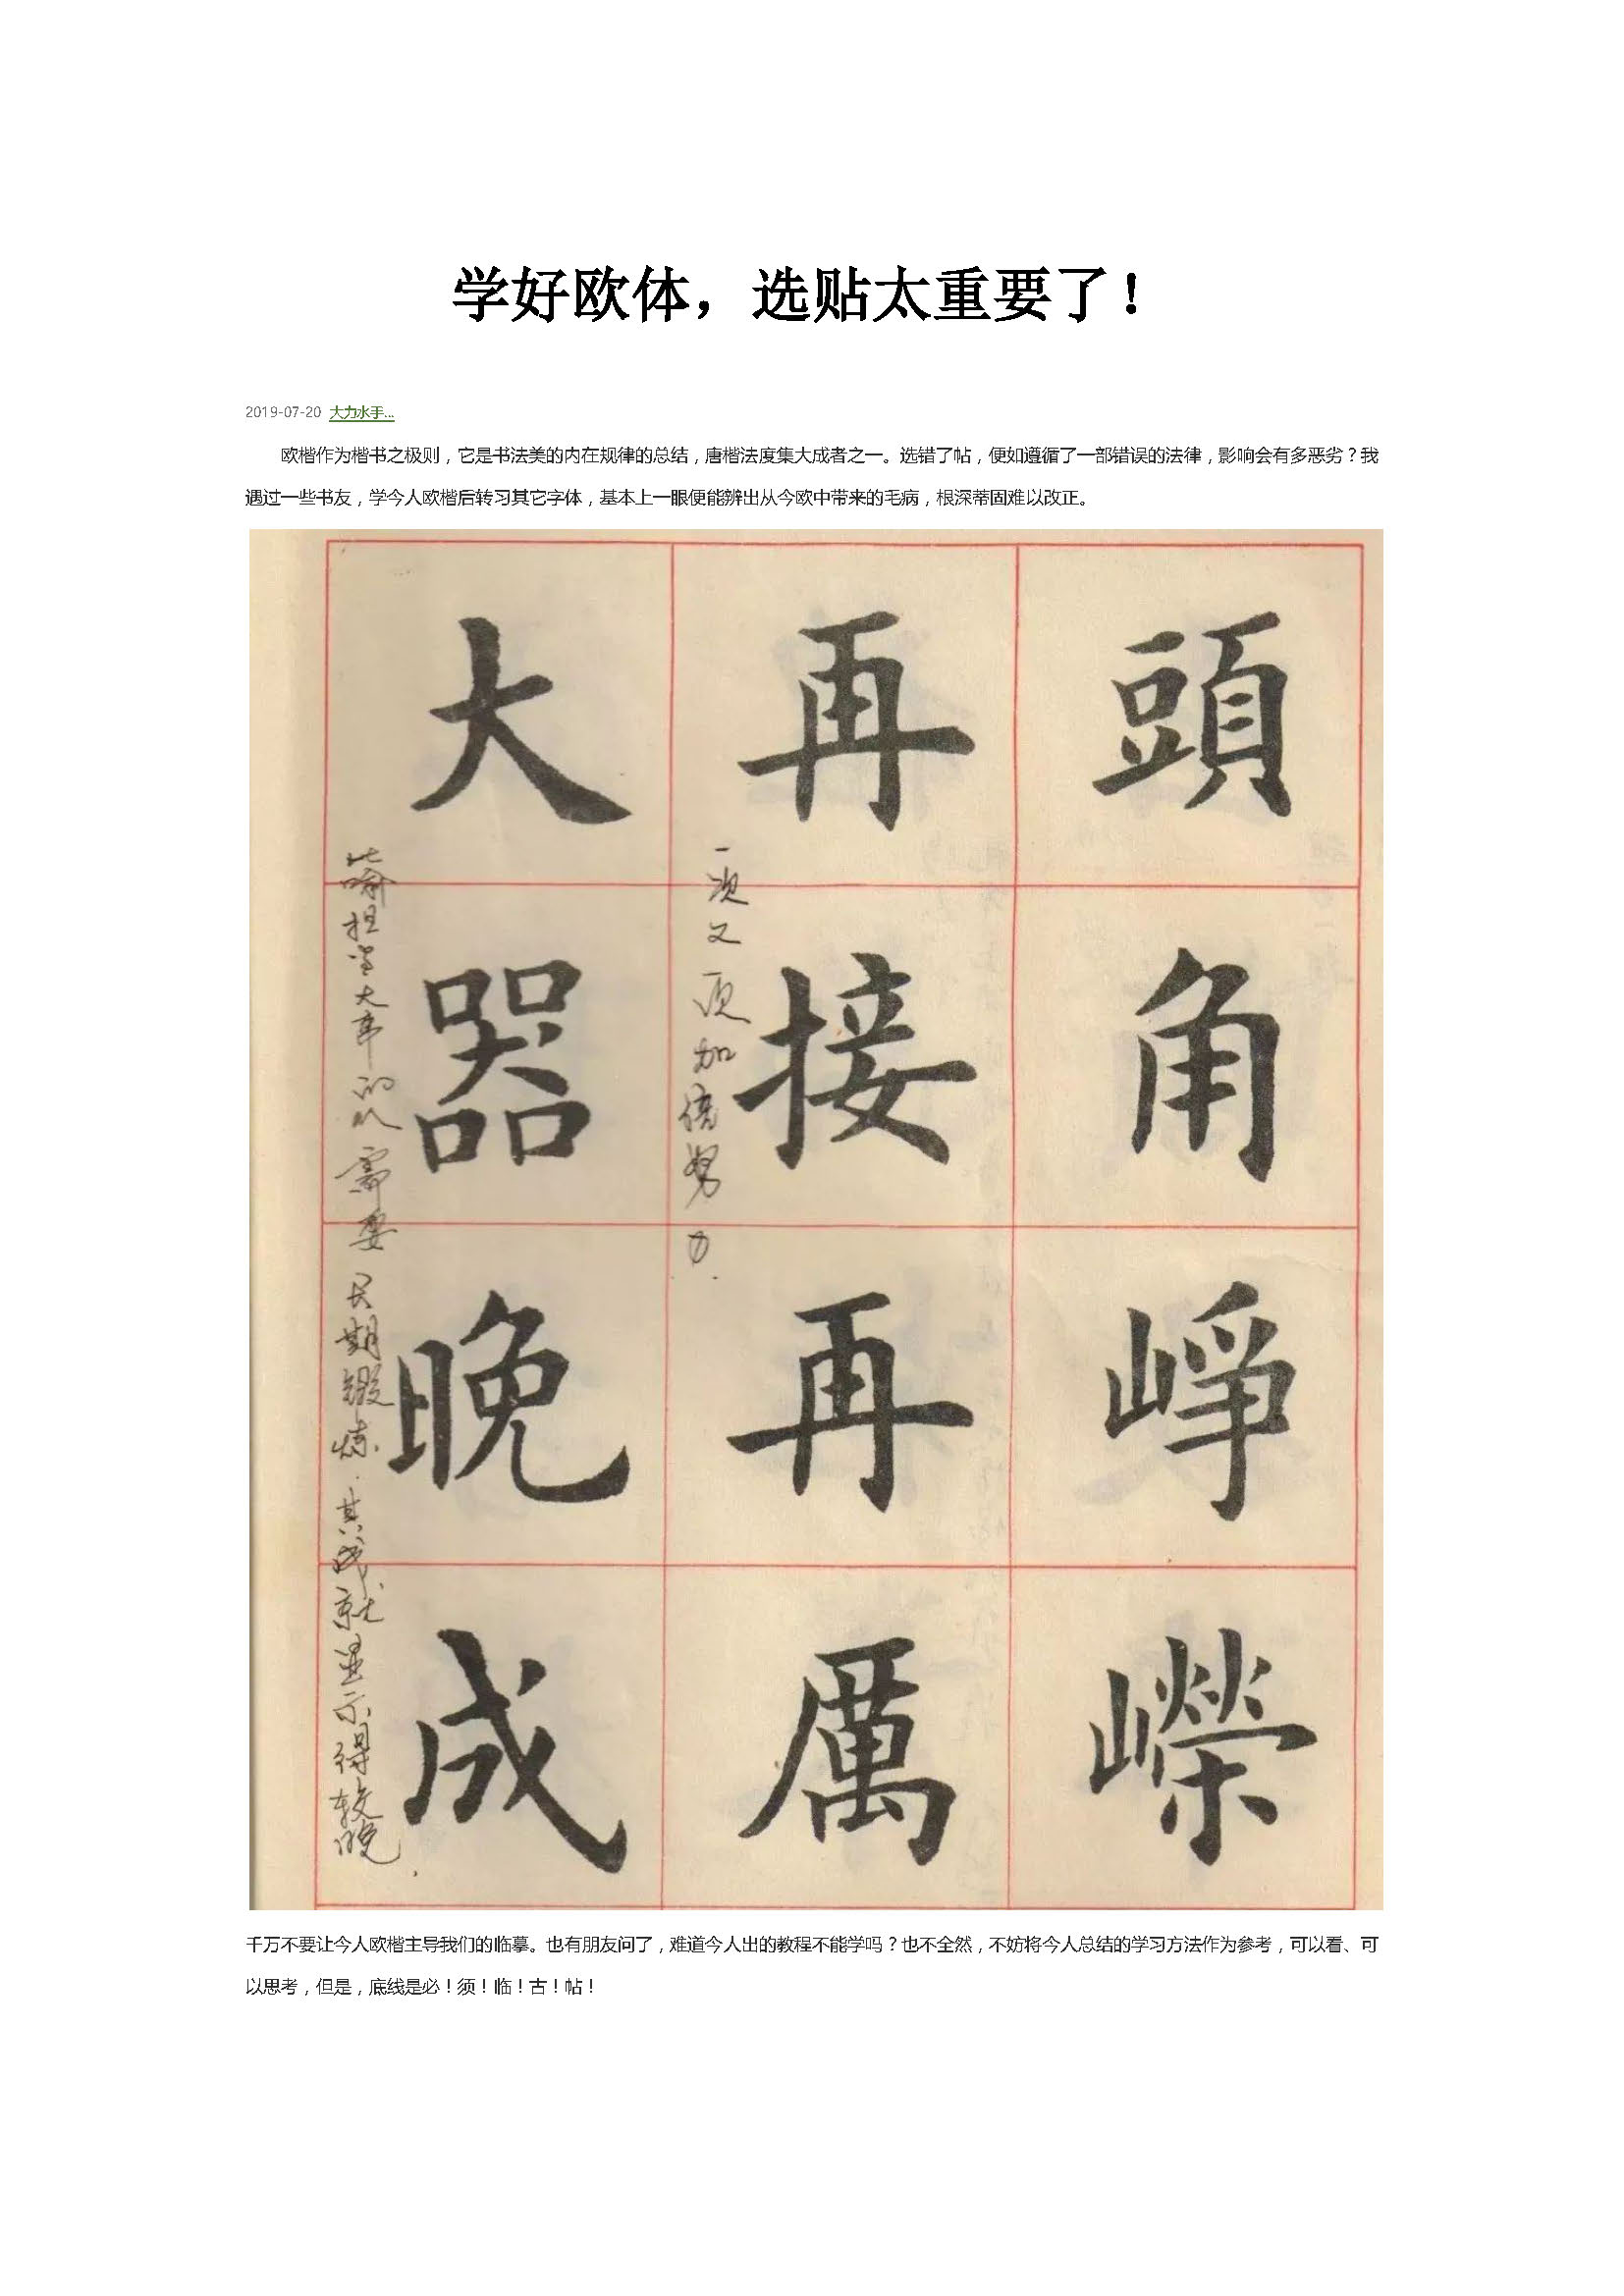 学好欧体，选贴太重要了！
2019-07-20 大力水手...
欧楷作为楷书之极则，它是书法美的内在规律的总结，唐楷法度集大成者之一。选错了帖，便如遵循了一部错误的法律，影响会有多恶劣？我
遇过一些书友，学今人欧楷后转习其它字体，基本上一眼便能辨出从今欧中带来的毛病，根深蒂固难以改正。
頭角峥嶸
再接再厲
一次又一次加倍努力.
大器晚成
比喻担当大事的人需要长期锻炼.其成就显示得较晚.
千万不要让今人欧楷主导我们的临摹。也有朋友问了，难道今人出的教程不能学吗？也不全然，不妨将今人总结的学习方法作为参考，可以看、可
以思考，但是，底线是必！须！临！古！帖！